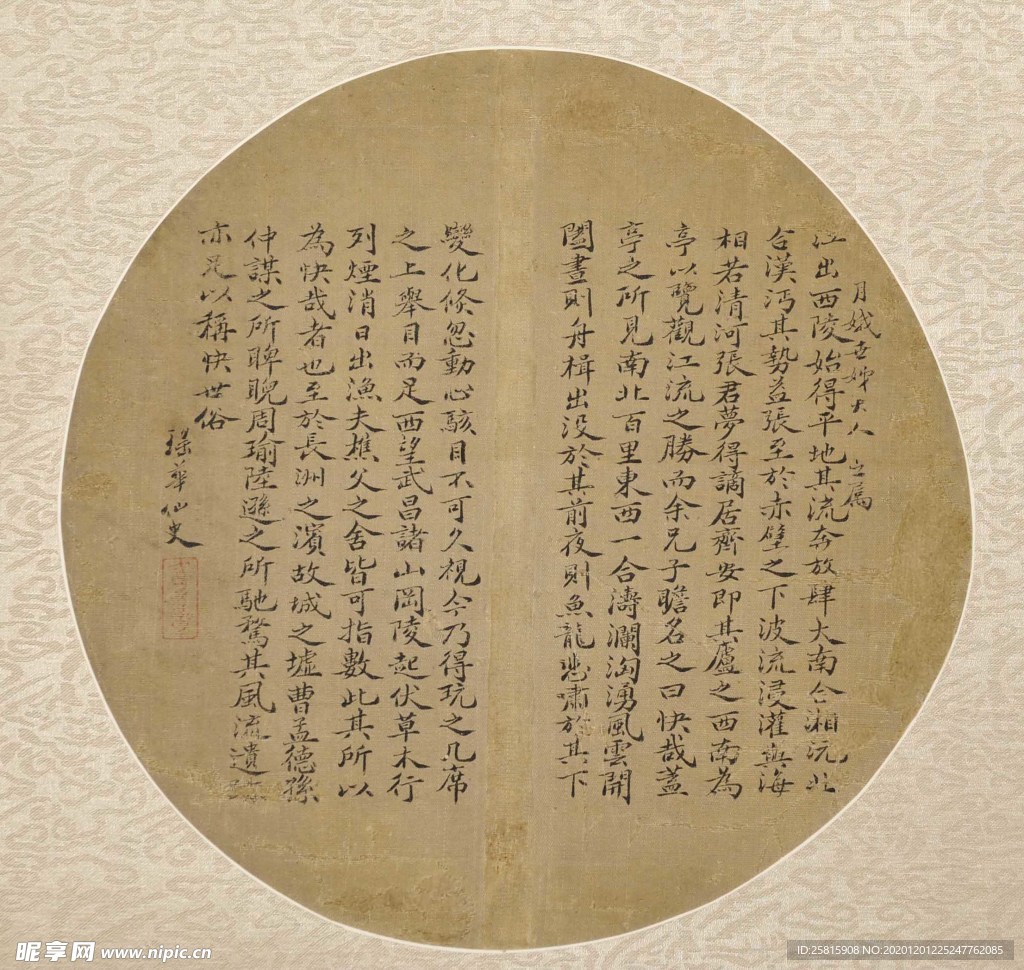 月娥世姊大人 之屬
江出西陵始得平地其流奔放肆大南合湘沅北
合漢沔其勢益張至於赤壁之下波流浸灌與海
相若清河張君夢得謫居齊安即其廬之西南為
亭以覽觀江流之勝而余兄子瞻名之曰快哉蓋
亭之所見南北百里東西一合濤瀾洶湧風雲開
闔晝則舟楫出没於其前夜則魚龍悲嘯於其下
變化倏忽動心駭目不可久視今乃得玩之几席
之上舉目而足西望武昌諸山岡陵起伏草木行
列煙消日出漁夫樵父之舍皆可指數此其所以
為快哉者也至於長洲之濱故城之墟曹孟德孫
仲謀之所睥睨周瑜陸遜之所馳騖其風流遺跡
亦足以稱快世俗
璪華仙史
昵享网 www.nipic.cn
ID:25815908 NO:20201201225247762085